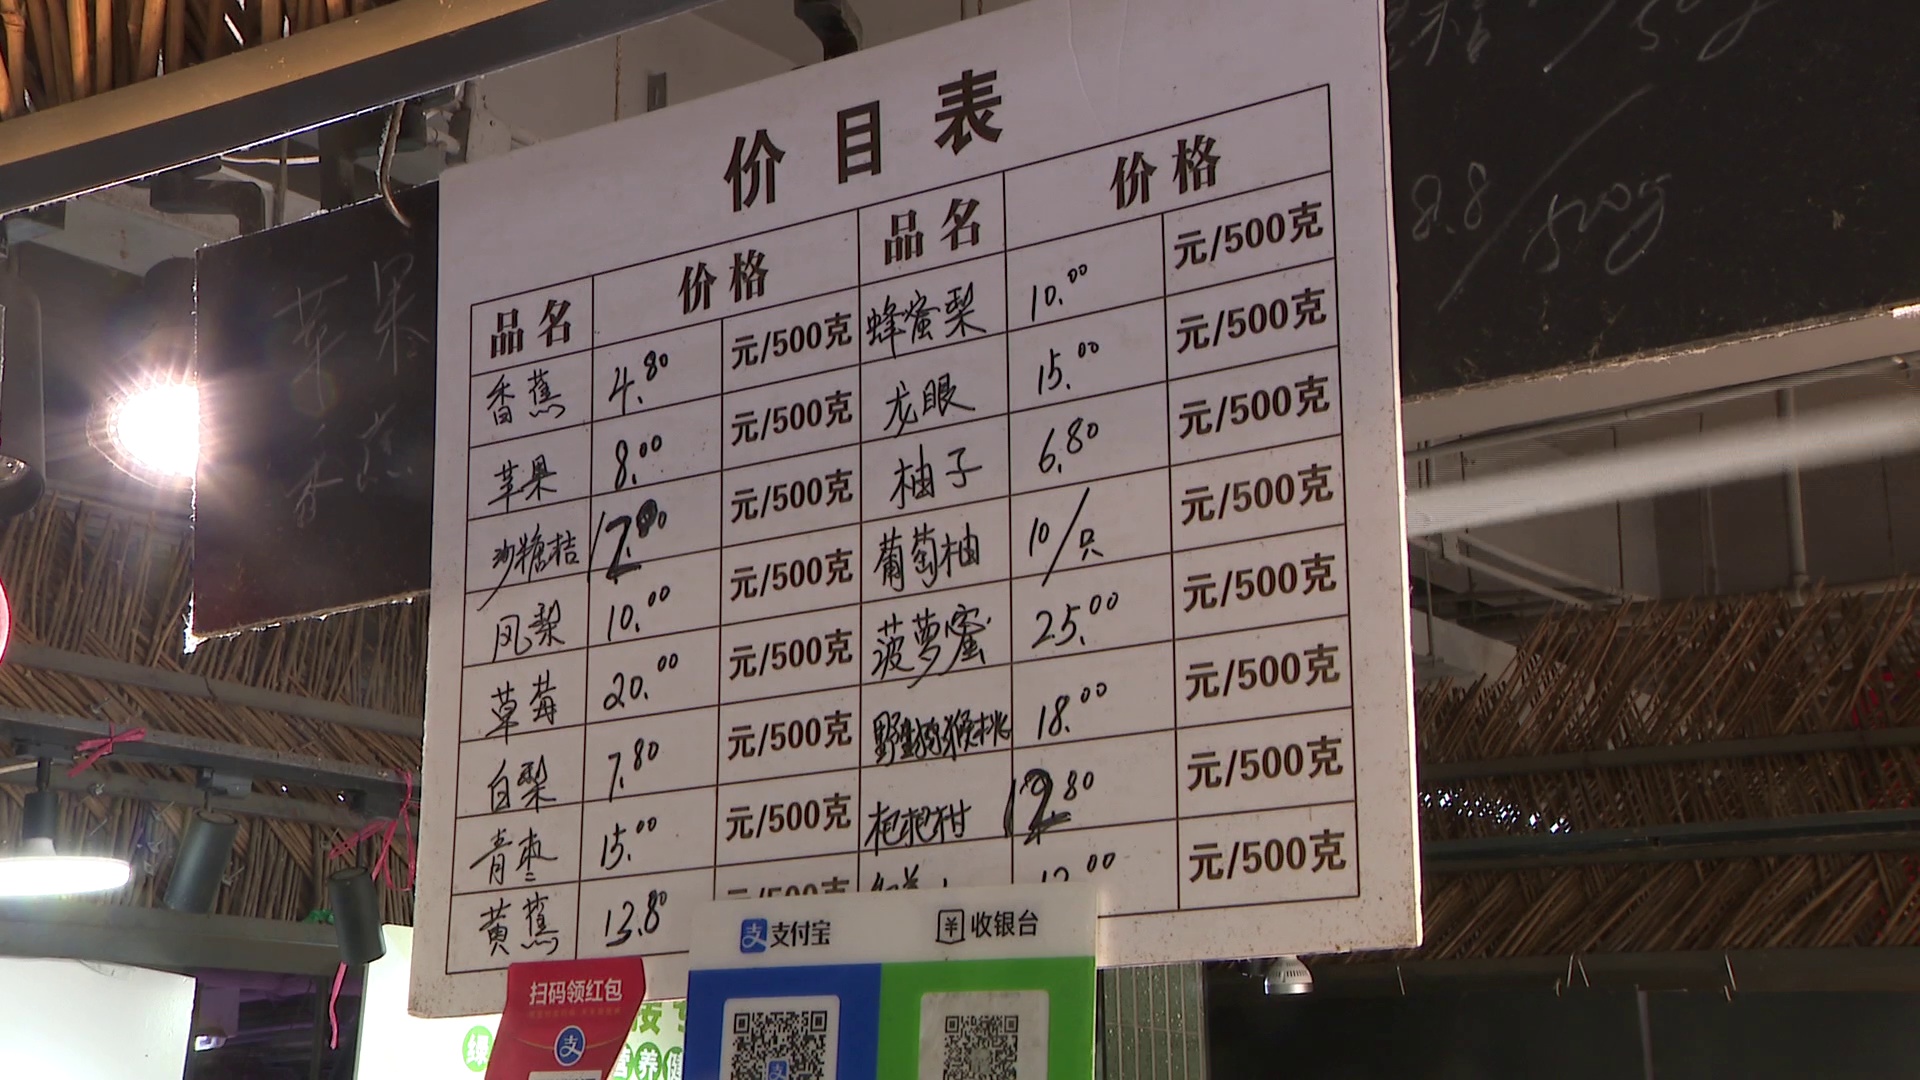 价目表
品名 价格 品名 价格
香蕉 4.80 元/500克 蜂蜜梨 10.00 元/500克
苹果 8.00 元/500克 龙眼 15.00 元/500克
沙糖桔 12.00 元/500克 柚子 6.80 元/500克
风梨 10.00 元/500克 葡萄柚 10/只 元/500克
草莓 20.00 元/500克 菠萝蜜 25.00 元/500克
白梨 7.80 元/500克 野生猕猴桃 18.00 元/500克
青枣 15.00 元/500克 耙耙柑 12.80 元/500克
黄蕉 13.80 元/500克 12.00 元/500克
苹果
香蕉
8.8/500g
支付宝 收银台
扫码领红包
支
绿
营养健